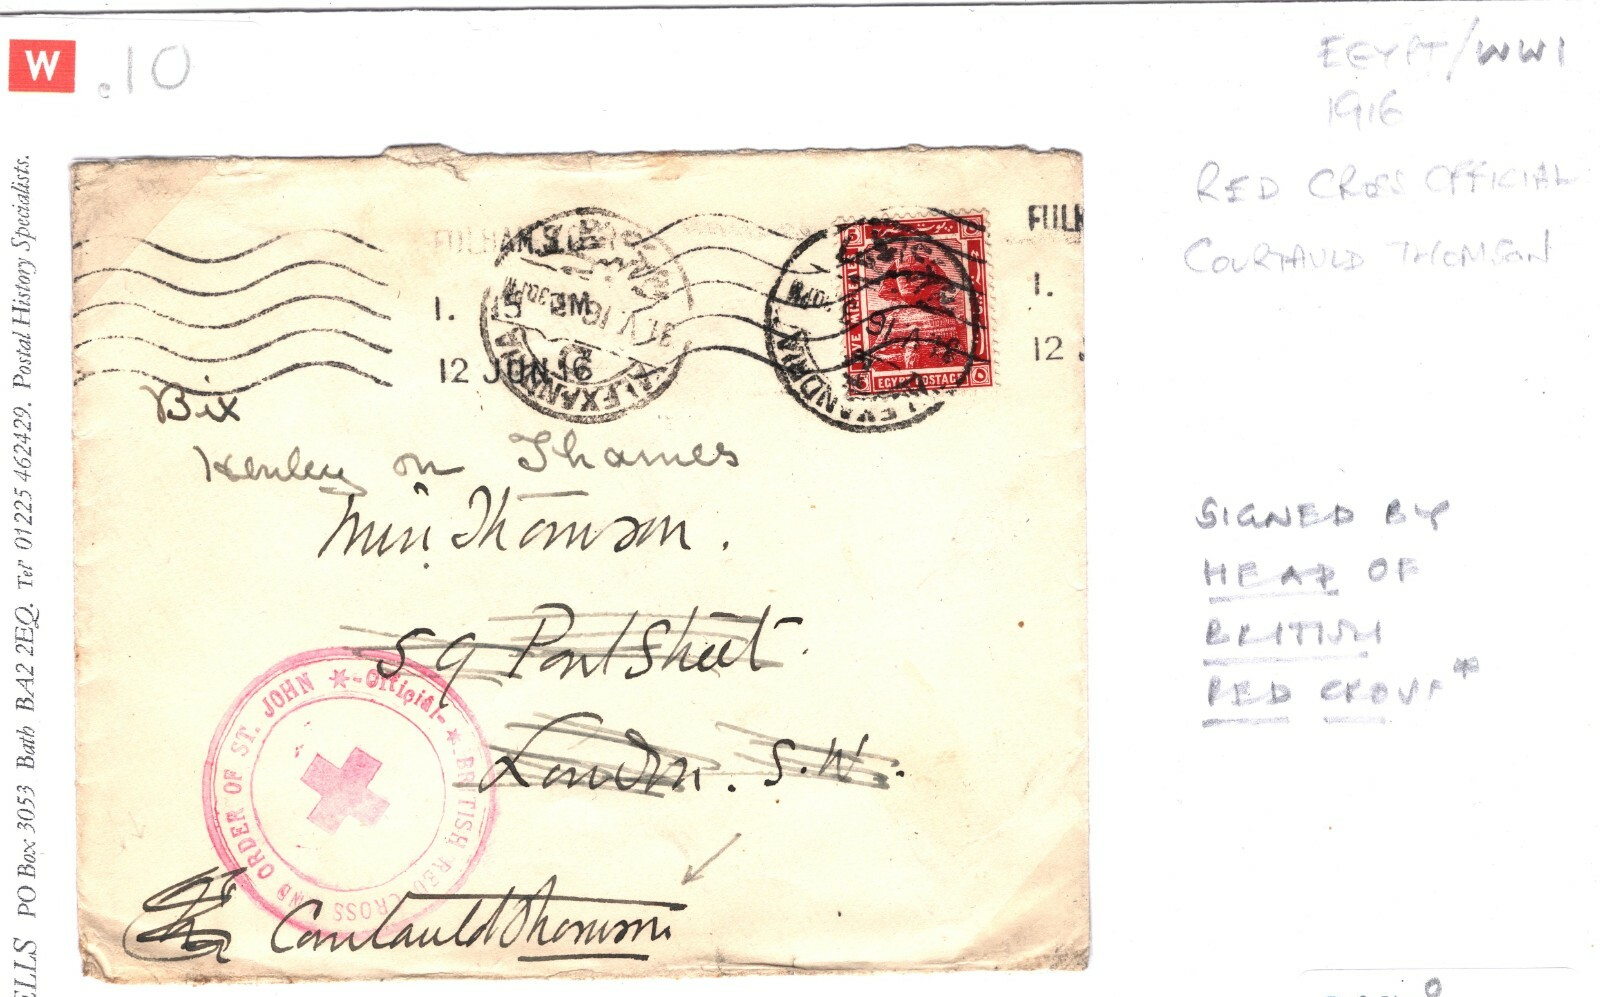 W
.10
EGYPT/WW1
1916
RED CROSS OFFICIAL
COURTAULD THOMSON
SIGNED BY
HEAD OF
BRITISH
RED CROSS*
ELLS PO Box 3053 Bath BA2 2EQ. Tel' 01225 462429. Postal History Specialists.
FULHAM.S.
1.
12 JUN 16
ALEXANDRIA
31. V. 16
ALEXANDRIA
EGYPT POSTAGE
FULH
1.
12 J
Bix
Henley on Thames
Miss Thomson.
59 Pont Street.
London. S.W.
BRITISH RED CROSS AND ORDER OF ST. JOHN
-Official-
Courtauld Thomson